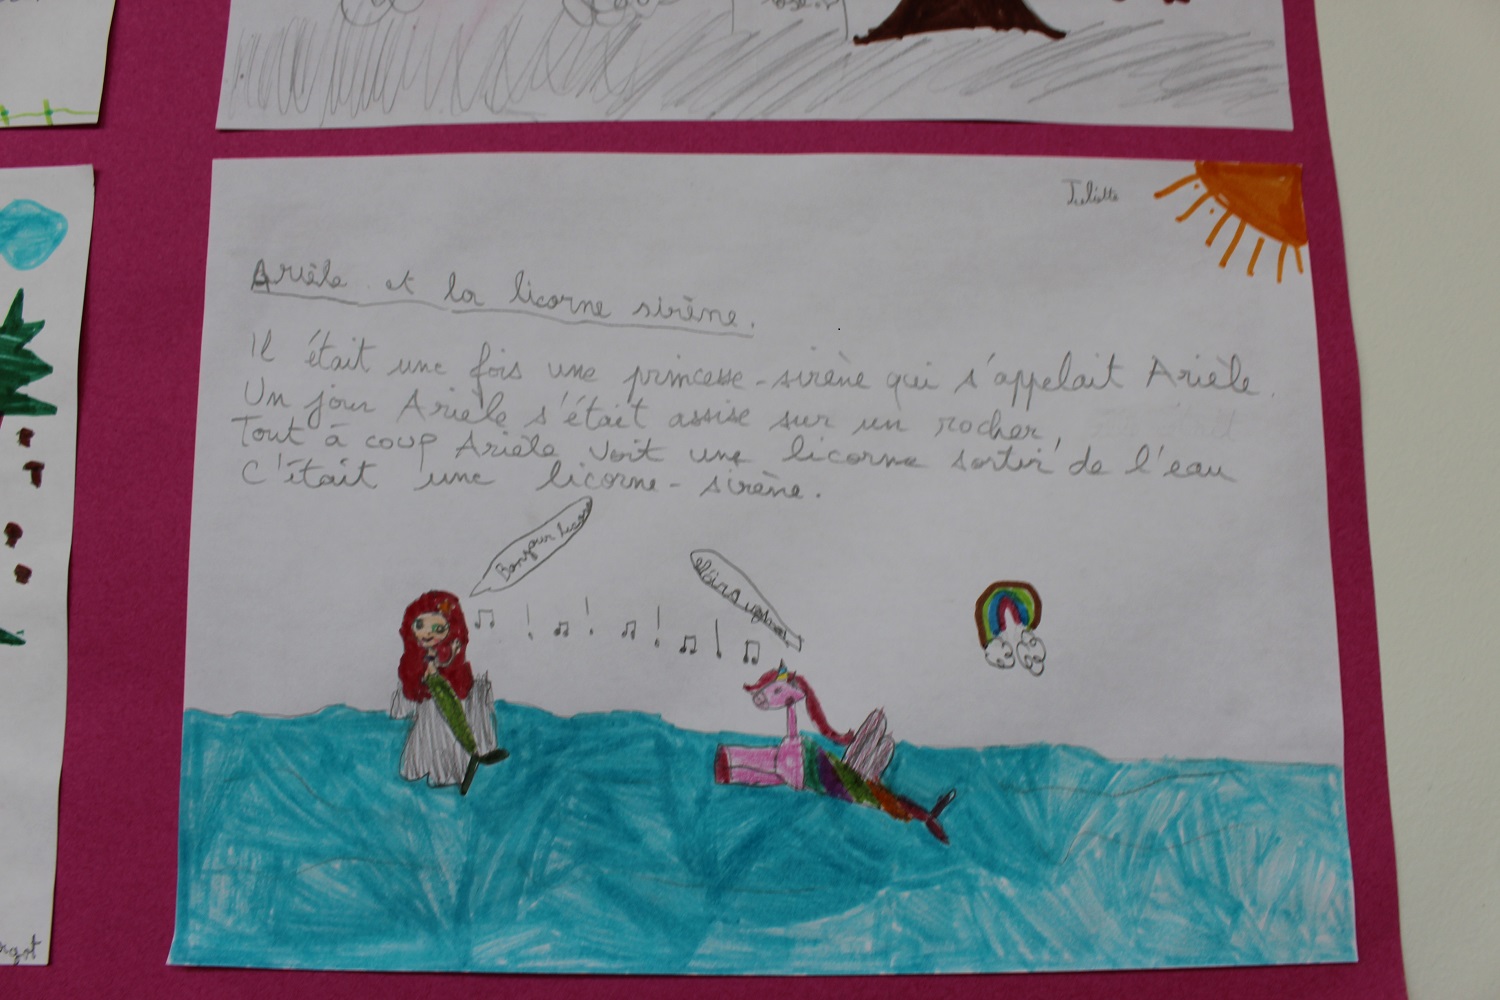 Juliette
Arièle et la licorne sirène.
Il était une fois une princesse-sirène qui s'appelait Arièle.
Un jour Arièle s'était assise sur un rocher,
Tout à coup Arièle voit une licorne sortir de l'eau
C'était une licorne-sirène.
Bonjour licorne